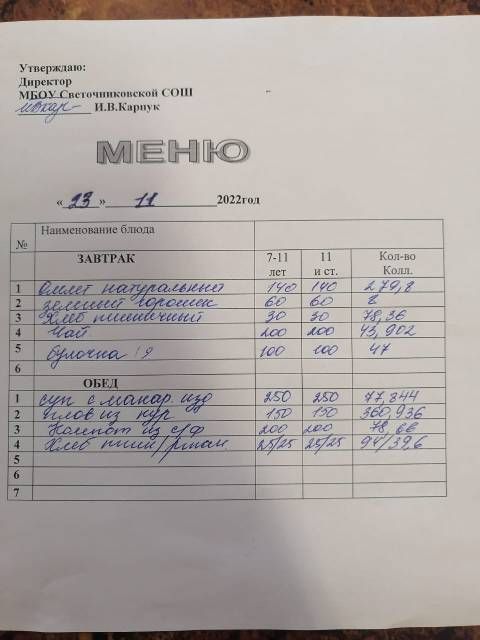 Утверждаю:
Директор
МБОУ Светочниковской СОШ
И.В.Карпук
МЕНЮ
« 23 » 11 2022год
№ Наименование блюда
ЗАВТРАК 7-11 лет 11 и ст. Кол-во Колл.
1 Омлет натуральный 140 140 279,8
2 зеленый горошек 60 60 8
3 Хлеб пшеничный 30 30 78,36
4 Чай 200 200 43,902
5 булочка 100 100 47
6
ОБЕД
1 суп с макар. изд 250 250 77,344
2 плов из кур 150 150 360,936
3 Компот из с/ф 200 200 78,66
4 Хлеб пшен/ржан. 25/25 25/25 94/39,6
5
6
7